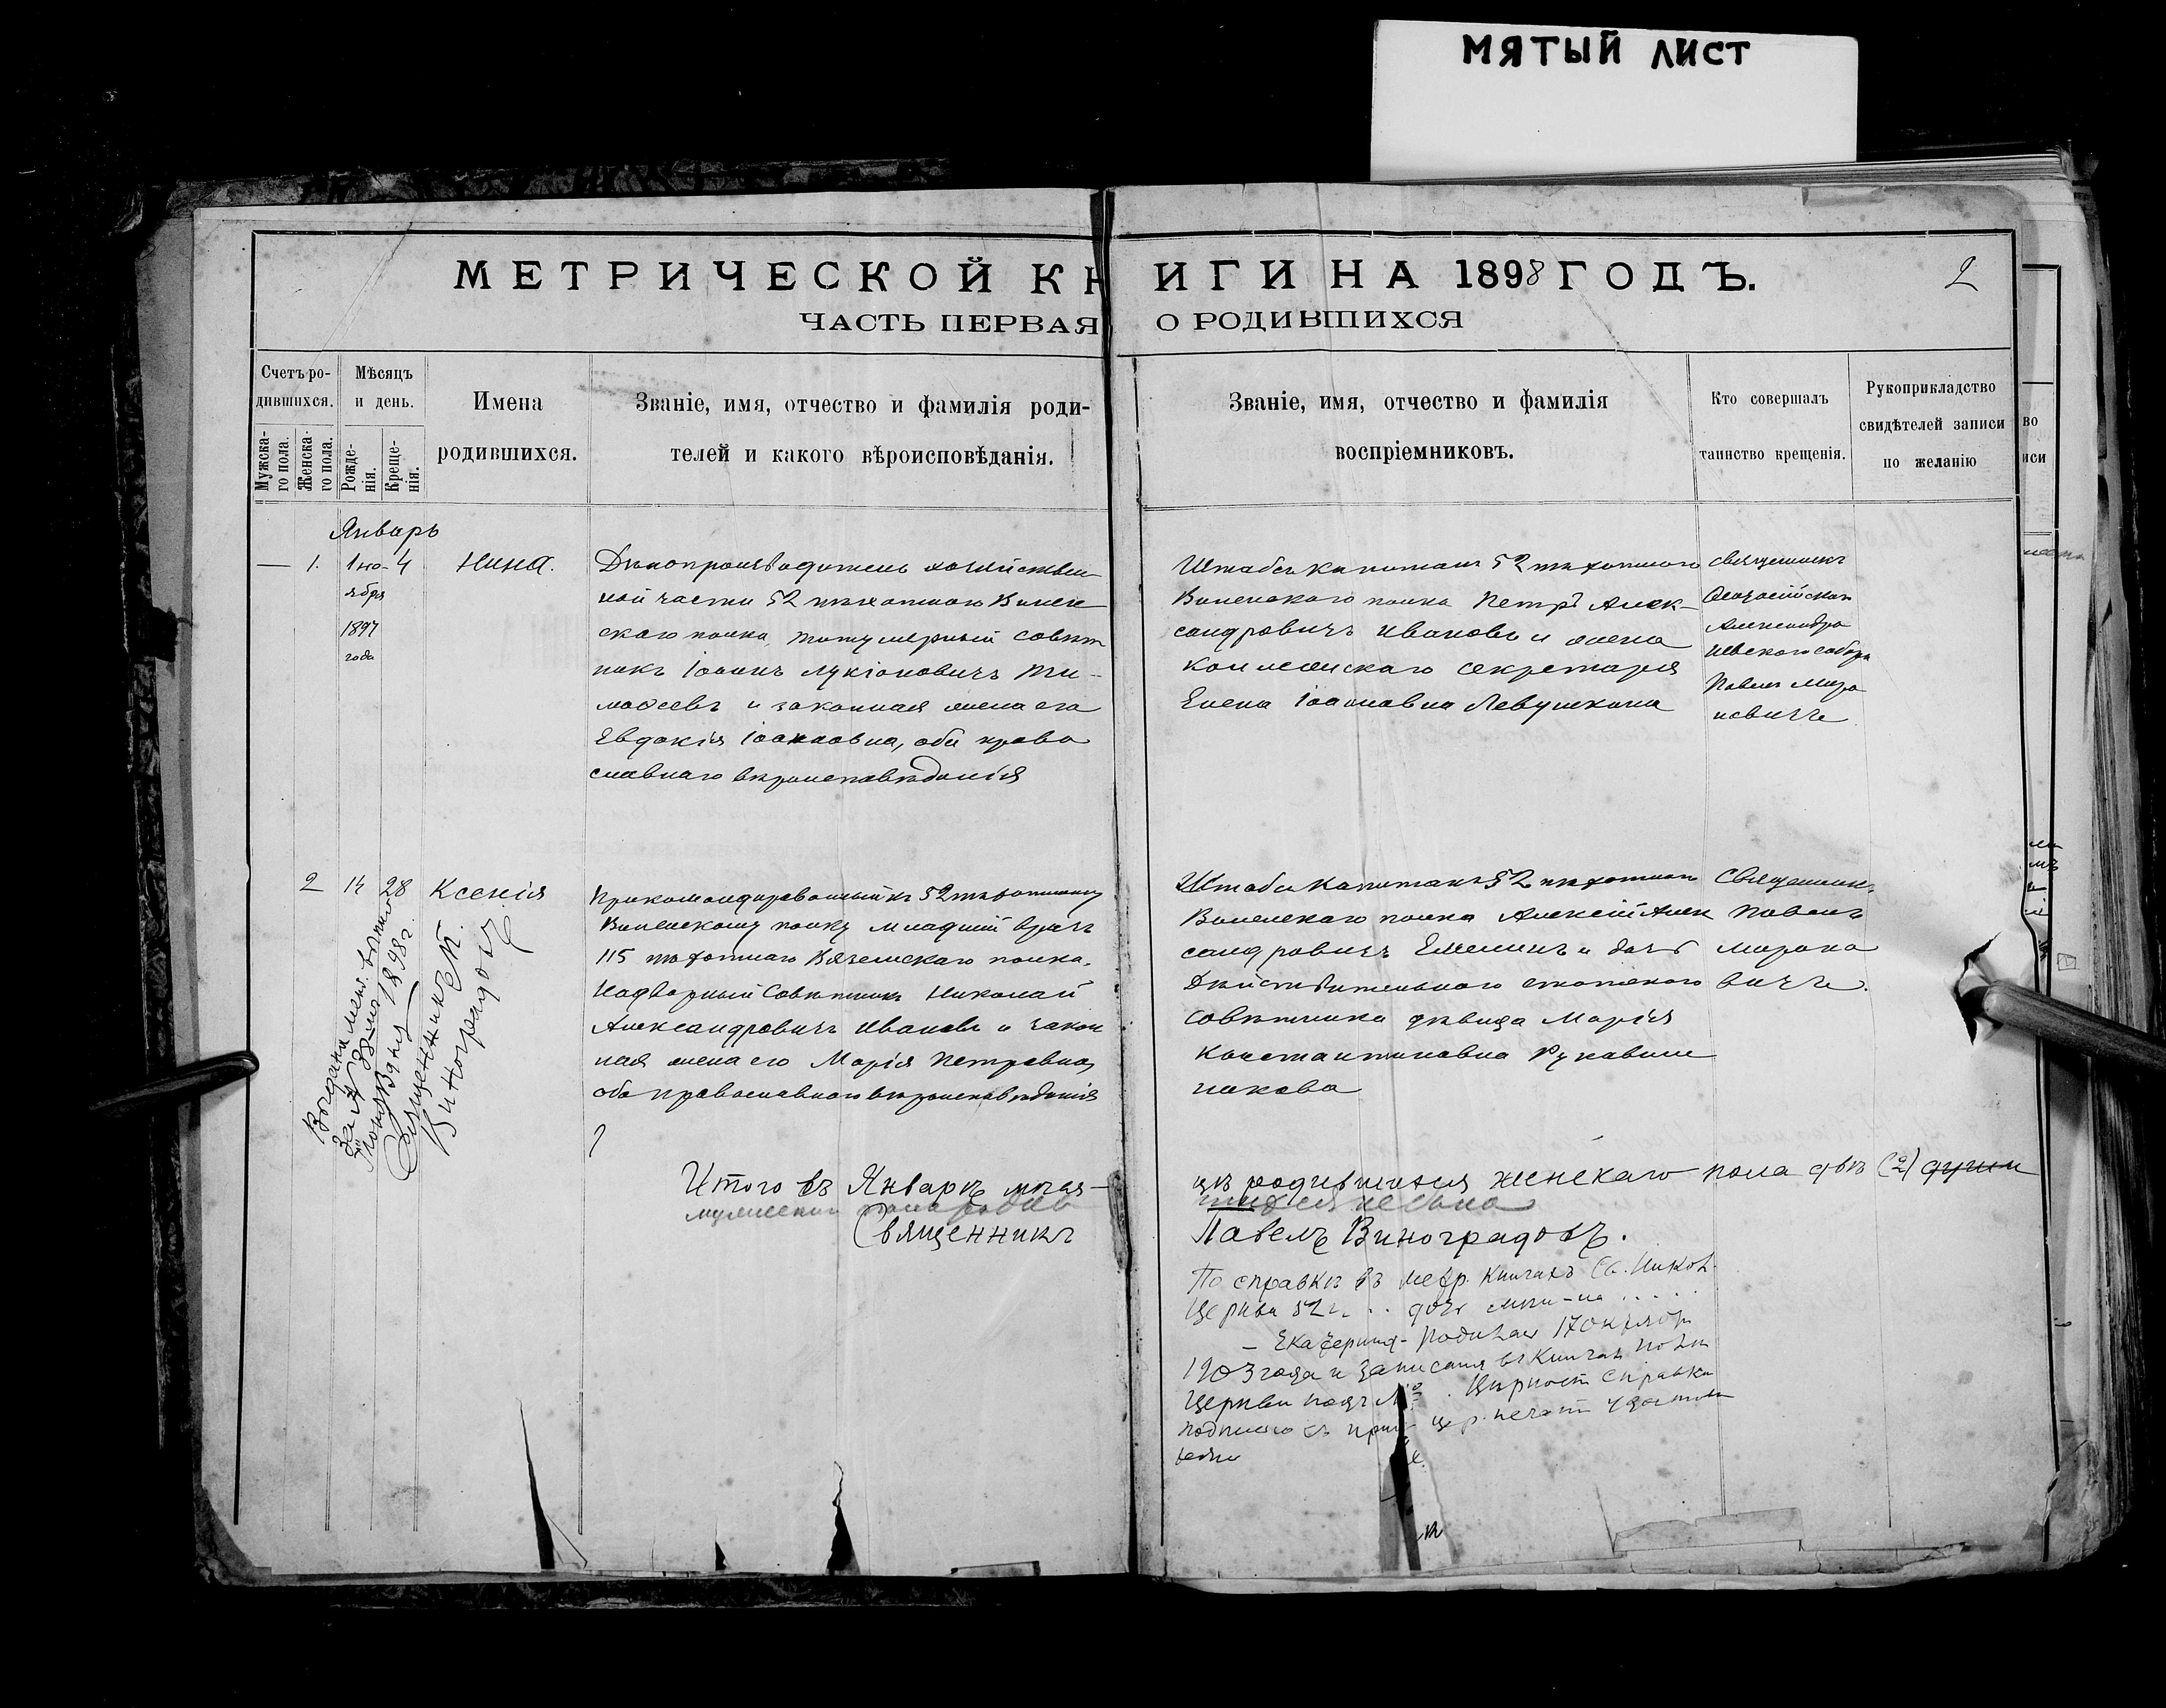 МЯТЫЙ ЛИСТ
МЕТРИЧЕСКОЙ КНИГИ НА 1898 ГОДЪ.
2
ЧАСТЬ ПЕРВАЯ О РОДИВШИХСЯ
Счетъ ро-
дившихся.
Мужска-
го пола.
Женска-
го пола.
Мѣсяцъ
и день.
Рожде-
нія.
Креще-
нія.
Имена
родившихся.
Званіе, имя, отчество и фамилія роди-
телей и какого вѣроисповѣданія.
Званіе, имя, отчество и фамилія
воспріемниковъ.
Кто совершалъ
таинство крещенія.
Рукоприкладство
свидѣтелей записи
по желанію
Январь
— 1.
1 но-
ября
1897
года
4
Нина.
Дѣлопроизводитель хозяйствен
ной части 52 пѣхотнаго Вилен
скаго полка, титулярный совѣт
никъ Іоаннъ Лукіановичъ Ти-
мофеевъ и законная жена его
Евдокія Іоанновна, оба право
славнаго вѣроисповѣданія
Штабсъ капитанъ 52 пѣхотнаго
Виленскаго полка Петръ Алек-
сандровичъ Ивановъ и жена
коллежскаго секретаря
Елена Іоанновна Левушкина
священникъ
Александро
Невскаго собора
Павелъ
2
14
28
Ксенія
Прикомандированный къ 52 пѣхотному
Виленскому полку младшій врачъ
115 пѣхотнаго Вяземскаго полка,
Надворный Совѣтникъ Николай
Александровичъ Ивановъ и закон
ная жена его Марія Петровна,
оба православнаго вѣроисповѣданія
Штабсъ капитанъ 52 пѣхотнаго
Виленскаго полка Алексій Алек
сандровичъ Емелинъ и дочь
Дѣйствительнаго статскаго
совѣтника дѣвица Марія
Константиновна Рукавиш
никова
Священникъ
Павелъ
1898 г.
Священникъ П.
Виноградовъ
Итого въ Январѣ мѣся-
цѣ родившихся женскаго пола двѣ (2)
мужескаго пола родив
шихся не было
Священникъ
Павелъ Виноградовъ.
По справкѣ въ метр. книгахъ Св. Никол.
Церкви 52 п. . . дочь
— Екатерина- родилась 17 октября
1903 года и записана въ книгахъ
Церкви подъ №. Вѣрность справки
подписью съ цер. печати